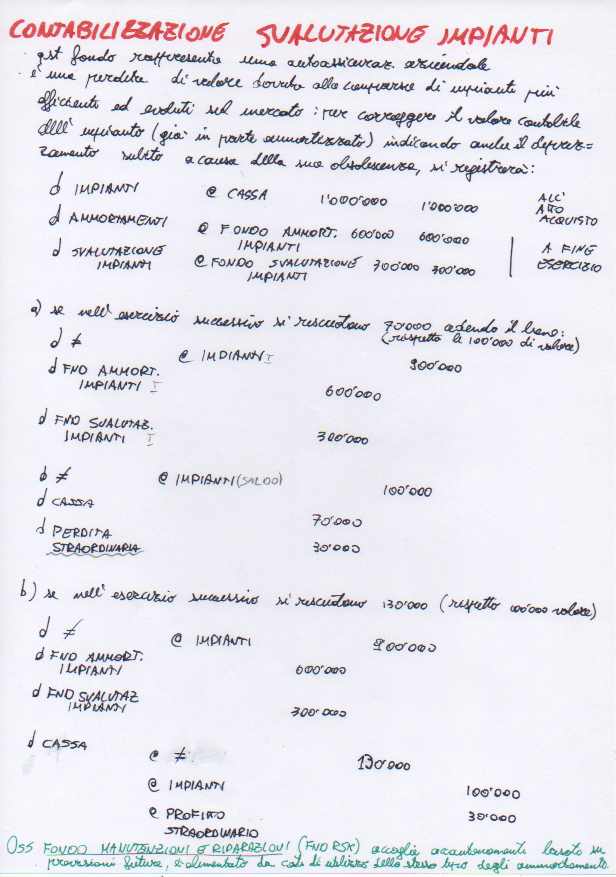 CONTABILIZZAZIONE SVALUTAZIONE IMPIANTI
qst fondo rappresenta una autoassicuraz. aziendale
è una perdita di valore dovuta alla comparsa di impianti più
efficienti ed evoluti sul mercato : per correggere il valore contabile
dell' impianto (già in parte ammortizzato) indicando anche il deprez=
zamento subito a causa della sua obsolescenza, si registrerà:
d IMPIANTI @ CASSA 1'000'000 1'000'000 ALL' ATTO ACQUISTO
d AMMORTAMENTI @ FONDO AMMORT. IMPIANTI 600'000 600'000
d SVALUTAZIONE IMPIANTI @ FONDO SVALUTAZIONE IMPIANTI 300'000 300'000 A FINE ESERCIZIO
a) se nell' esercizio successivo si riscuotono 70'000 cedendo il bene:
(rispetto la 100'000 di valore)
d ≠ @ IMPIANTI 900'000
d FND AMMORT.
IMPIANTI 600'000
d FND SVALUTAZ.
IMPIANTI 300'000
d ≠ @ IMPIANTI (SALDO) 100'000
d CASSA 70'000
d PERDITA
STRAORDINARIA 30'000
b) se nell' esercizio successivo si riscuotono 130'000 (rispetto 100'000 valore)
d ≠ @ IMPIANTI 900'000
d FND AMMORT.
IMPIANTI 600'000
d FND SVALUTAZ
IMPIANTI 300'000
d CASSA @ ≠ 130'000
@ IMPIANTI 100'000
@ PROFITTO
STRAORDINARIO 30'000
OSS FONDO MANUTENZIONI E RIPARAZIONI (FND RSK) accoglie accantonamenti basato su
previsioni future, è alimentato da costi di utilizzo dello stesso tipo degli ammortamenti